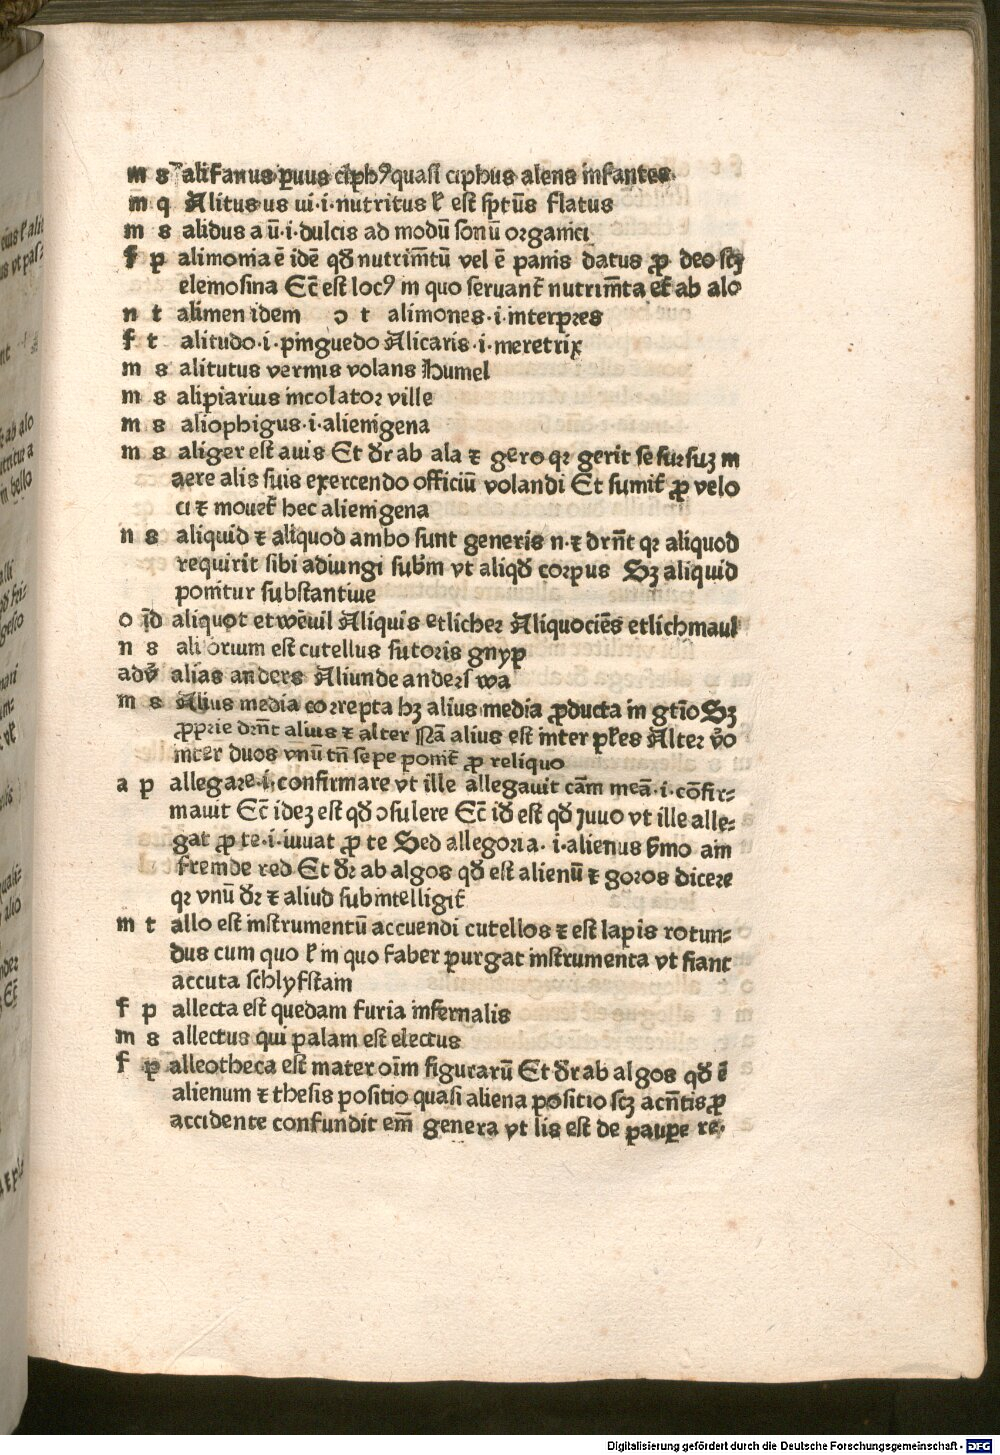 m s alifanus ꝑuus ciphꝰ quasi ciphus alens infantes
m q Alitus us ui·i·nutritus ł est spt̄us flatus
m s alidus a ū·i·dulcis ad modū sonū organici
f p alimonia ē idē qđ nutrim̄tū vel ē panis datus ꝓ deo scꝫ
elemosina Ec̄ est locꝰ in quo seruant̄ nutrim̄ta et ab alo
n t alimen idem ɔ t alimones·i·interp̄res
f t alitudo·i·pinguedo Alicaris·i·meretrix
m s alitutus vermis volans Humel
m s alipiarius incolator ville
m s aliophigus·i·alienigena
m s aliger est auis Et dr̄ ab ala ⁊ gero qr gerit se sursuꝫ in
aere alis suis exercendo officiū volandi Et sumit̄ ꝓ velo
ci ⁊ mouet̄ hec alienigena
n s aliquid ⁊ aliquod ambo sunt generis n·⁊ drn̄t qr aliquod
requirit sibi adiungi sub̄m vt aliqđ corpus Sꝫ aliquid
ponitur substantiue
o īd aliquot etwēuil Aliquis etlicher Aliquociēs etlichmaul
n s aliborum est cutellus sutoris gnyp
adv̄ alias anders Aliunde anders wa
m s Alius media correpta hꝫ alius media ꝓducta in gt̄io Sꝫ
ꝓprie drn̄t alius ⁊ alter Nā alius est inter pl̄es Alter v̄o
inter duos vnū tn̄ sepe ponit̄ ꝓ reliquo
a p allegare·i·confirmare vt ille allegauit cām meā·i·cōfir⸗
mauit Ec̄ ideꝫ est qđ ɔsulere Ec̄ iđ est qđ juuo vt ille alle⸗
gat ꝓ te·i·iuuat ꝓ te Sed allegoria·i·alienus s̄mo ain
fremde red Et dr̄ ab algos qđ est alienū ⁊ goros dicere
qr vnū dr̄ ⁊ aliud subintelligit̄
m t allo est instrumentū accuendi cutellos ⁊ est lapis rotun⸗
dus cum quo ł in quo faber purgat instrumenta vt fiant
accuta schlyfstain
f p allecta est quedam furia infernalis
m s allectus qui palam est electus
f p alleotheca est mater oīm figurarū Et dr̄ ab algos qđ ē
alienum ⁊ thesis positio quasi aliena positio scꝫ acn̄tis ꝓ
accidente confundit em̄ genera vt lis est de pauꝑe re⸗
Digitalisierung gefördert durch die Deutsche Forschungsgemeinschaft - DFG